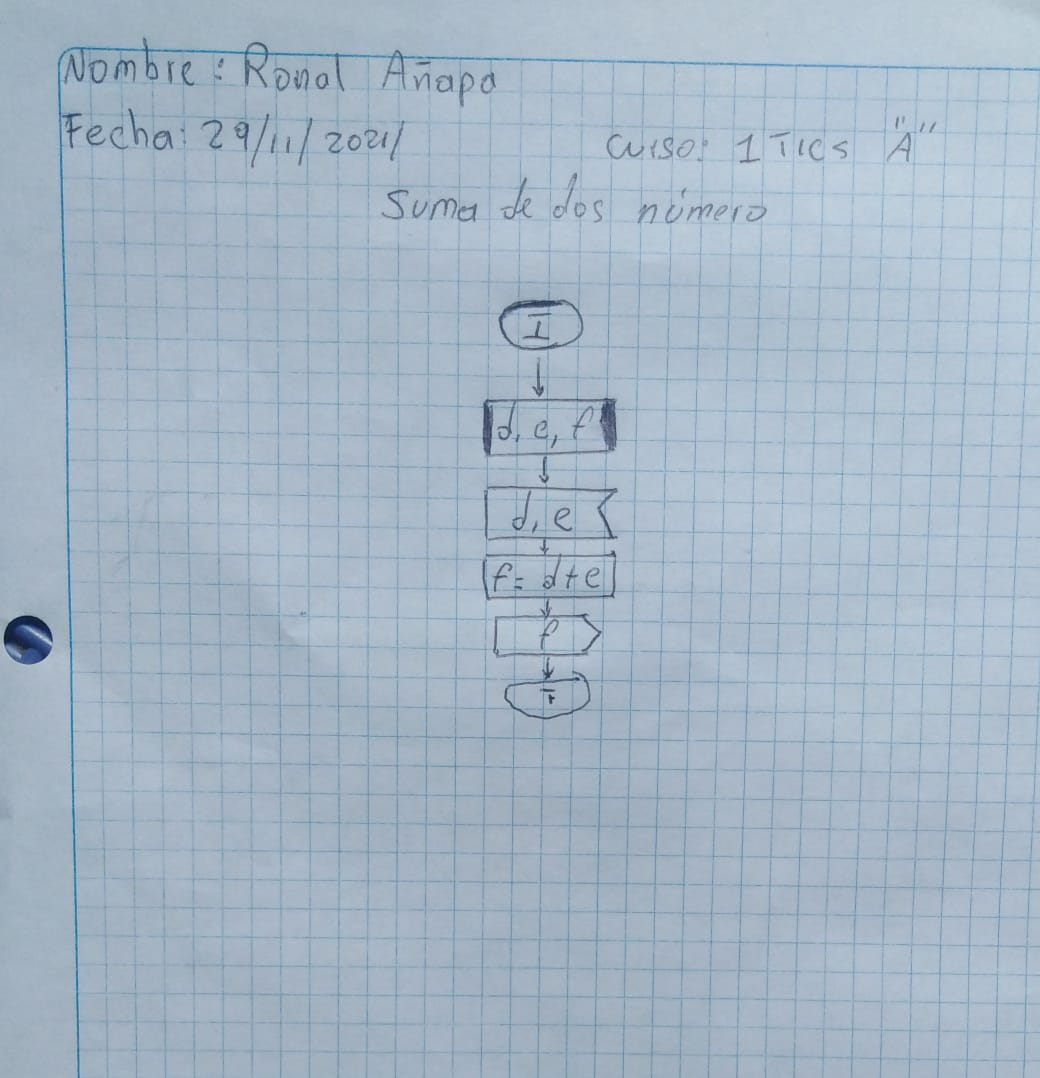 Nombre: Ronal Añapa
Fecha: 29/11/2021 curso: 1 Tics "A"
Suma de dos número
I
d, e, f
d, e
f= d+e
f
F